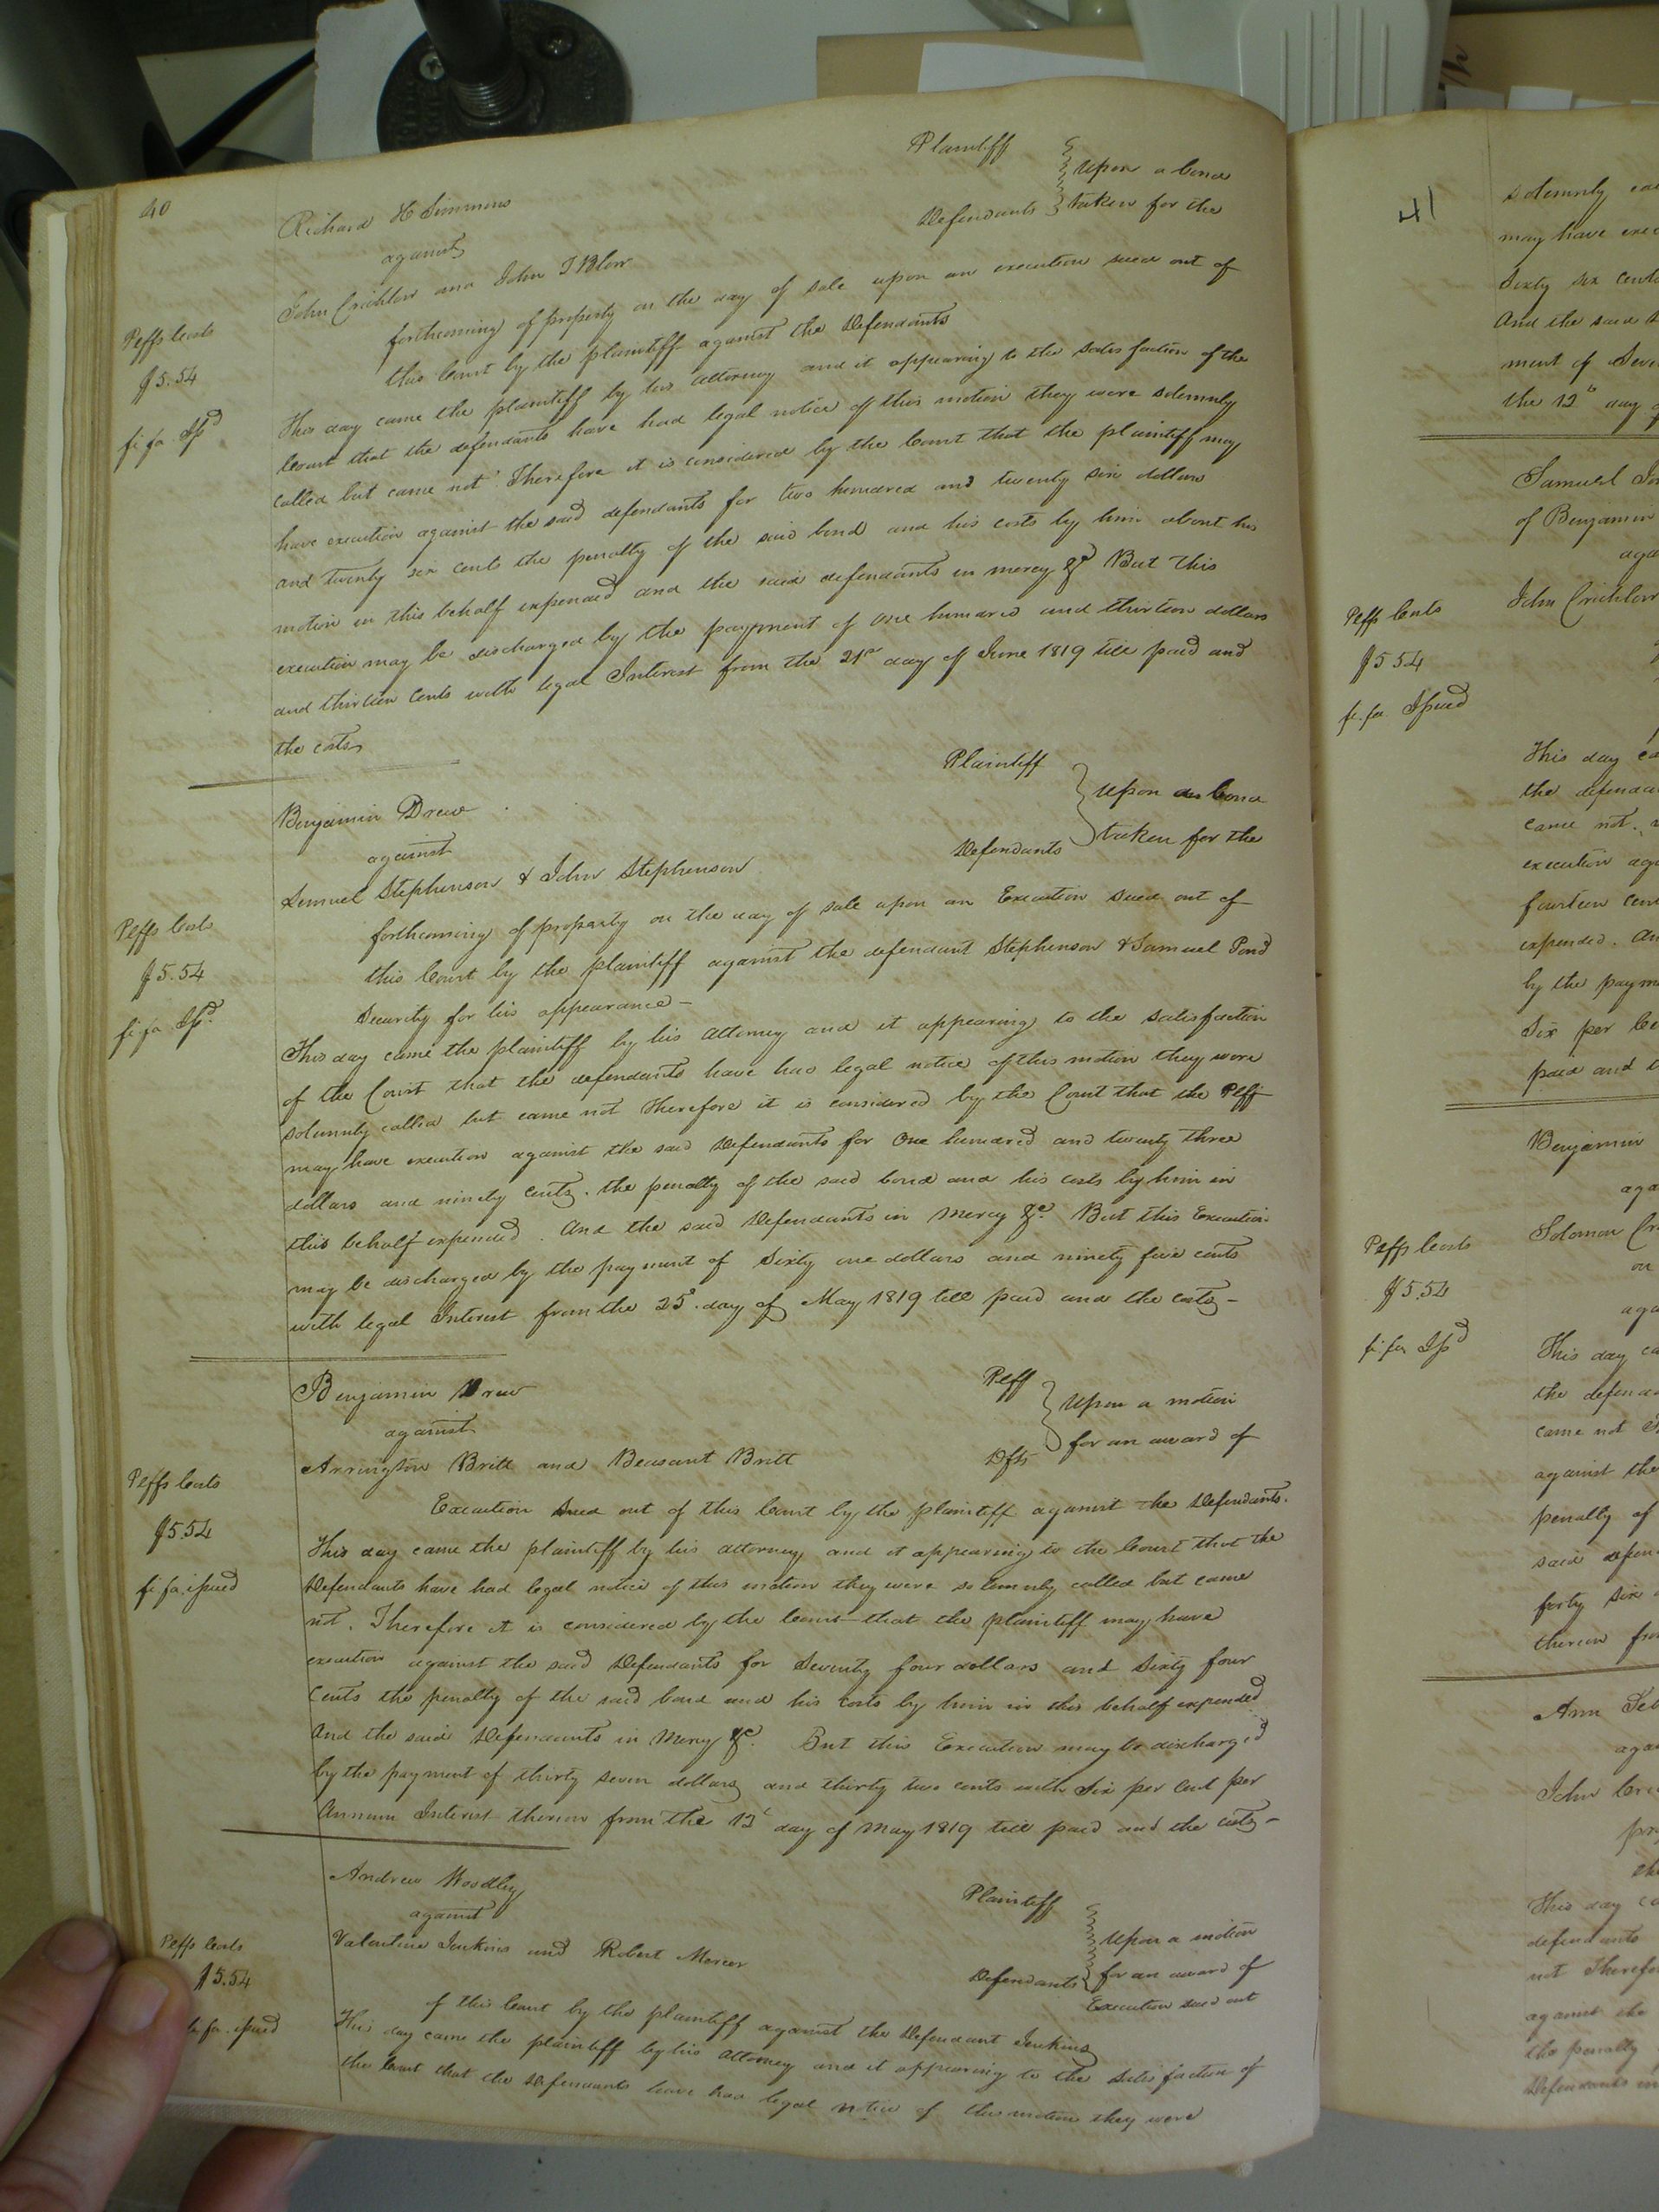 40
Richard H Simmons Plaintiff
against Upon a bond
John Crichlow and John T Blow Defendants taken for the
forthcoming of property on the day of sale upon an execution sued out of
this Court by the plaintiff against the Defendants
Plffs Costs
$5.54
fi fa Issd
This day came the plaintiff by his attorney and it appearing to the satisfaction of the
Court that the defendants have had legal notice of this motion they were solemnly
called but came not Therefore it is considered by the Court that the plaintiff may
have execution against the said defendants for two hundred and twenty six dollars
and twenty six cents the penalty of the said bond and his costs by him about his
motion in this behalf expended and the said defendants in mercy &c But this
execution may be discharged by the payment of one hundred and thirteen dollars
and thirteen Cents with legal Interest from the 21st day of June 1819 till paid and
the costs
Benjamin Drew Plaintiff
against Upon a bond
Lemuel Stephenson & John Stephenson Defendants taken for the
forthcoming of property on the day of sale upon an Execution sued out of
this Court by the plaintiff against the defendant Stephenson & Samuel Pond
Security for his appearance –
Plffs Costs
$5.54
fi fa Issd
This day came the plaintiff by his attorney and it appearing to the satisfaction
of the Court that the defendants have had legal notice of this motion they were
solemnly called but came not therefore it is considered by the Court that the Plff
may have execution against the said Defendants for One hundred and twenty three
dollars and ninety Cents. the penalty of the said bond and his costs by him in
this behalf expended. And the said Defendants in Mercy &c. But this Execution
may be discharged by the payment of Sixty one dollars and ninety five cents
with legal Interest from the 25th day of May 1819 till paid and the costs –
Benjamin Drew Plff
against Upon a motion
Arrington Britt and Beasant Britt Dfts for an award of
Execution sued out of this Court by the plaintiff against the Defendants.
Plffs Costs
$5.54
fi fa issued
This day came the plaintiff by his attorney and it appearing to the Court that the
Defendants have had legal notice of this motion they were solemnly called but came
not. Therefore it is considered by the Court that the plaintiff may have
execution against the said Defendants for Seventy four dollars and Sixty four
Cents the penalty of the said bond and his costs by him in this behalf expended
And the said Defendants in Mercy &c. But this Execution may be discharged
by the payment of thirty seven dollars and thirty two cents with Six per Cent per
Annum Interest thereon from the 12th day of May 1819 till paid and the costs –
Andrew Woodley Plaintiff
against Upon a motion
Valentine Jenkins and Robert Mercer Defendants for an award of
Execution sued out
of this Court by the plaintiff against the Defendant Jenkins
Plffs Costs
$5.54
fi fa issued
This day came the plaintiff by his attorney and it appearing to the satisfaction of
the Court that the Defendants have had legal notice of this motion they were
41
solemnly
may have
Sixty six cents
And the said
ment of
the 12th day
Samuel
of Benjamin
John Crichlow
Plffs Costs
$5.54
fi. fa Issued
This day
the
came not.
execution
fourteen
expended.
by the
Six per
paid and
Benjamin
Solomon
on
Plffs Costs
$5.54
fi fa Issd
This day
the
came not
against the
penalty of
said
forty six
thereon
Ann
John
This day
defendants
not
against the
the penalty
Defendants